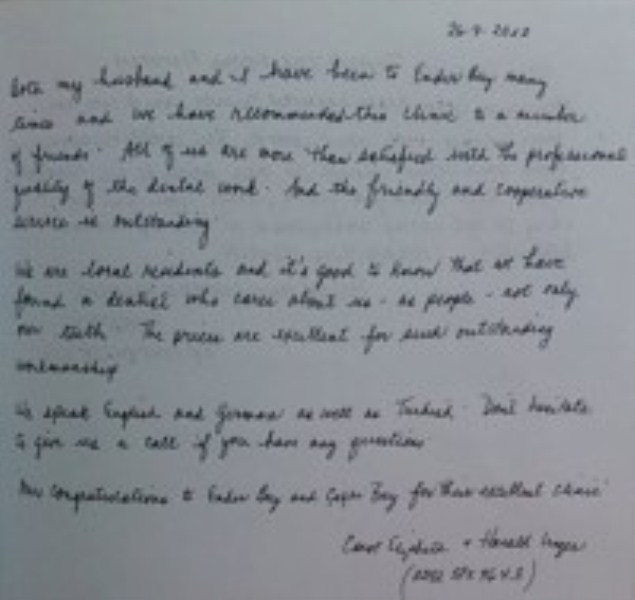 Both my husband and I have been to Ender Bey many
times and we have recommended this clinic to a number
of friends. All of us are more than satisfied with the professional
quality of the dental work. And the friendly and cooperative
service is outstanding.
We are local residents and it's good to know that we have
found a dentist who cares about us - as people - not only
our teeth. The prices are excellent for such outstanding
workmanship
We speak English and German as well as Turkish. Don't hesitate
to give us a call if you have any questions
Our congratulations to Ender Bey and Bey for their excellent clinic
Carol + Harald